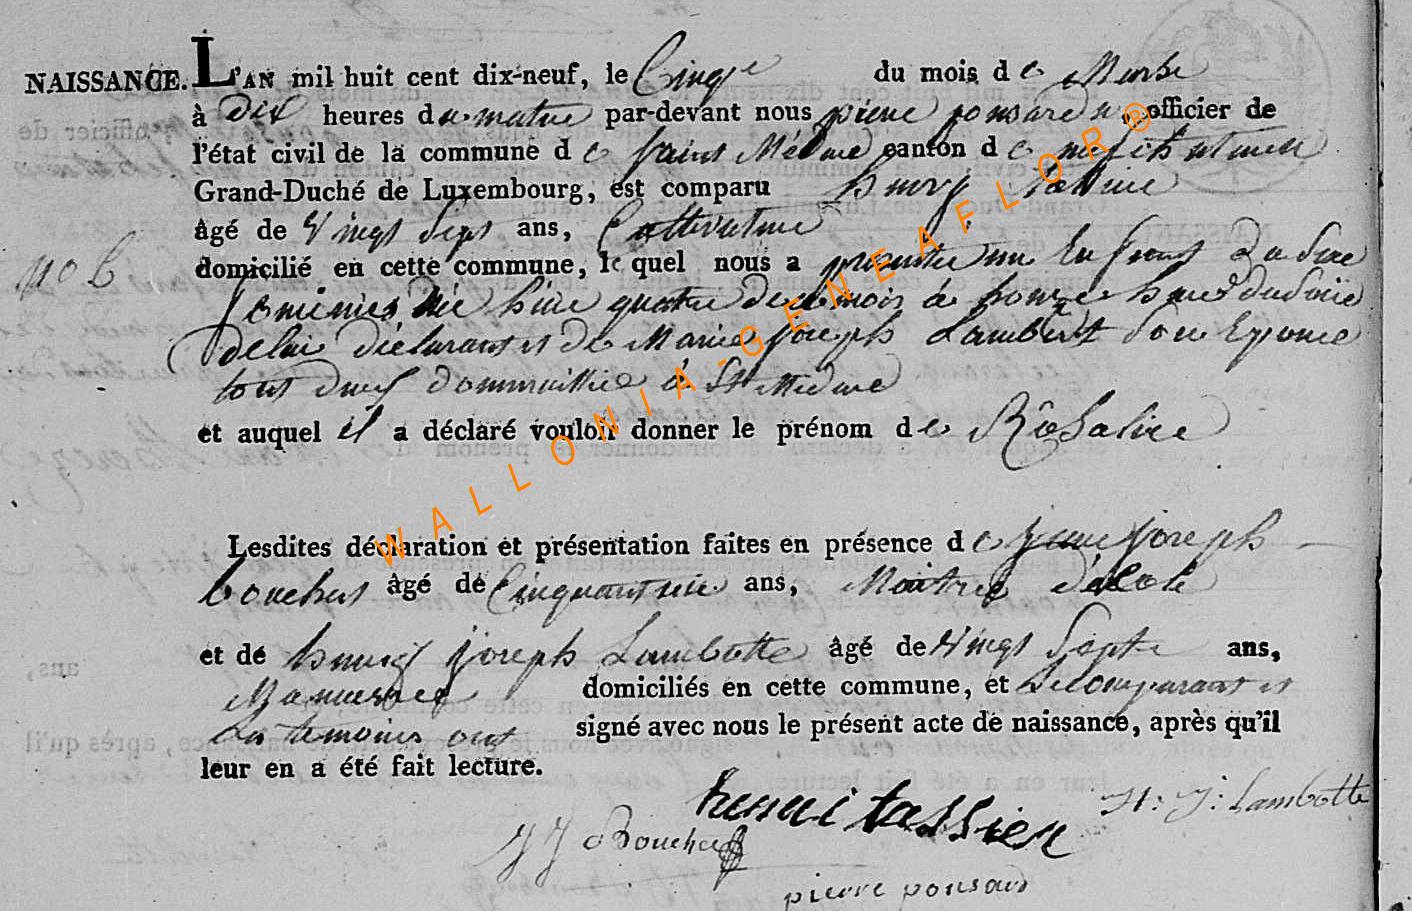 NAISSANCE. L'AN mil huit cent dix-neuf, le Cinq du mois de
à dix heures du matin par-devant nous pierre ponsard officier de
l'état civil de la commune de saint Médard canton de
Grand-Duché de Luxembourg, est comparu henry tassier
âgé de vingt sept ans, Cultivateur
domicilié en cette commune, le quel nous a présenté un Enfant du sexe
no 6
né hier quatre de ce mois à onze heures du soir
de lui déclarant et de Marie joseph Lambert son Epouse
tous deux à St Médard
et auquel il a déclaré vouloir donner le prénom de Rosalie
Lesdites déclaration et présentation faites en présence de jean joseph
bouchat âgé de ans, Maitre d'école
et de henry joseph Lambotte âgé de vingt sept ans,
domiciliés en cette commune, et le comparant et
Les temoins ont signé avec nous le présent acte de naissance, après qu'il
leur en a été fait lecture.
henri tassier H: J: Lambotte
JJ Bouchat
pierre ponsard
WALLONIA-GENEAFLOR®